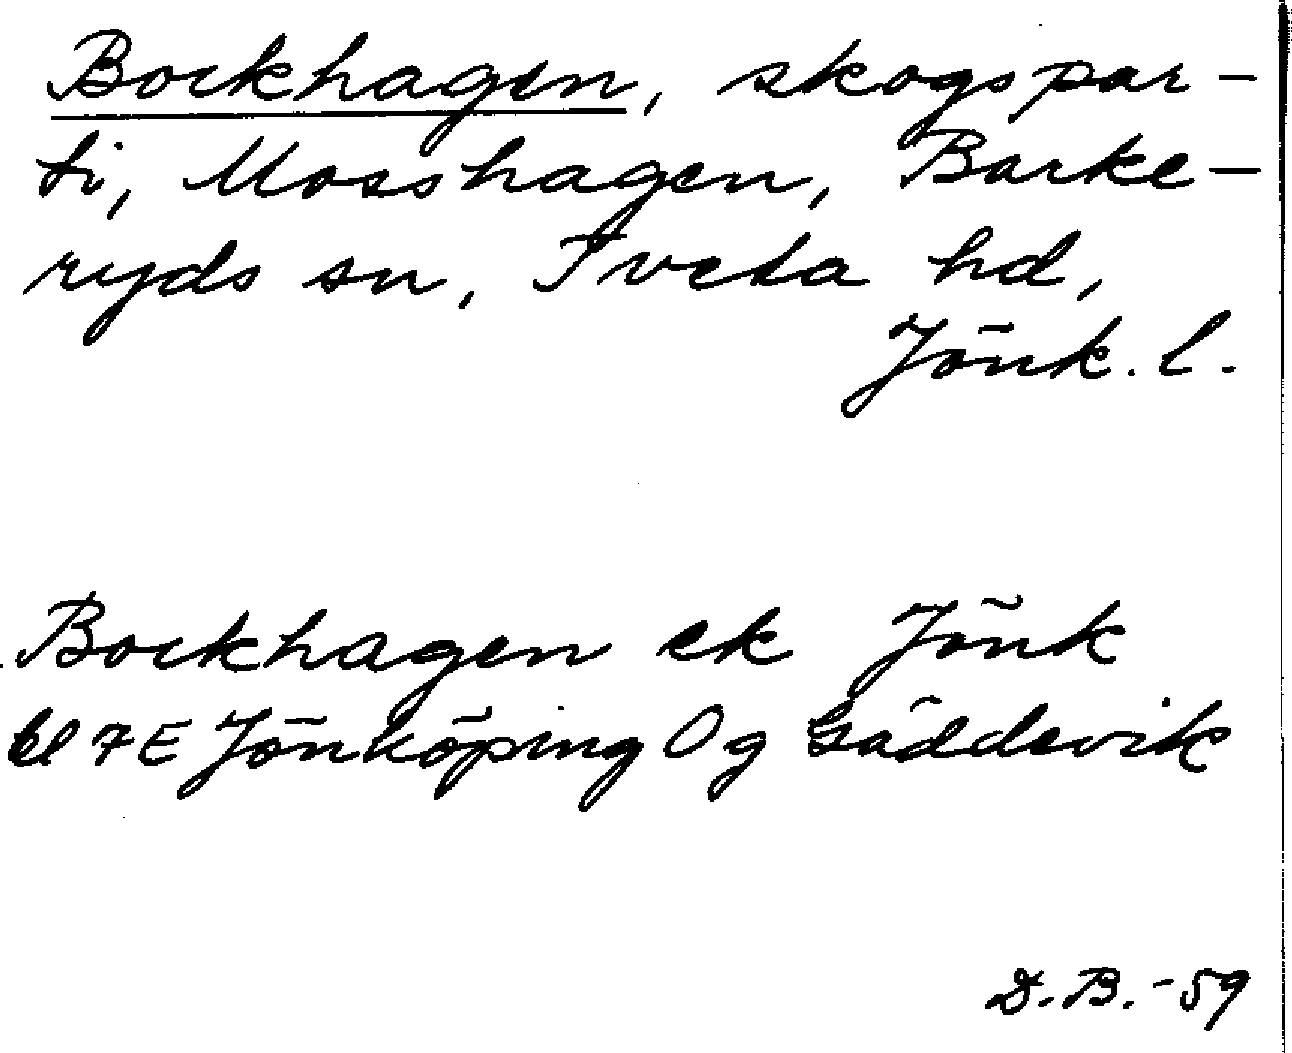 Bockhagen, skogspar-
ti, Mosshagen, Barke-
ryds sn, Tveta hd,
Jönk. l.
Bockhagen ek Jönk
bl 7E Jönköping Og Gäddevik
D.B.-59